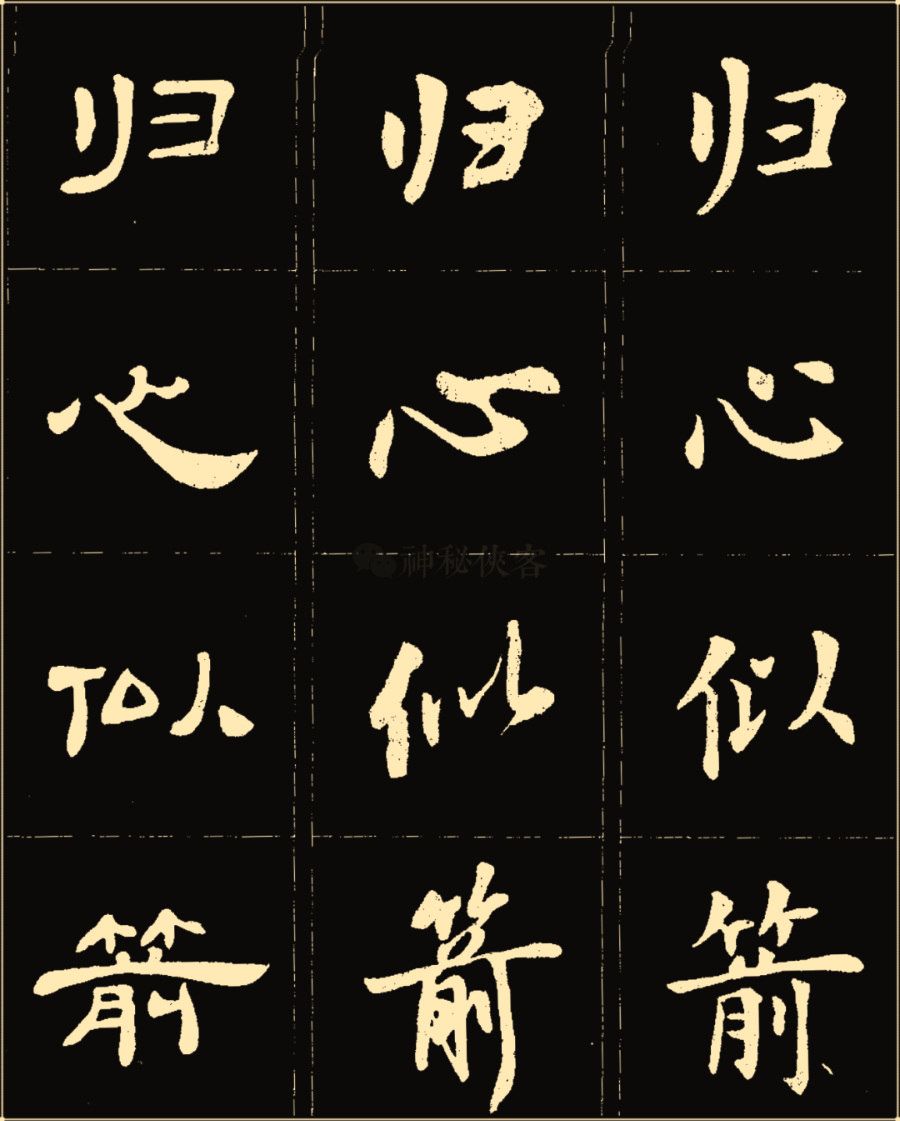 归 归 归
心 心 心
神秘侠客
似 似 似
箭 箭 箭